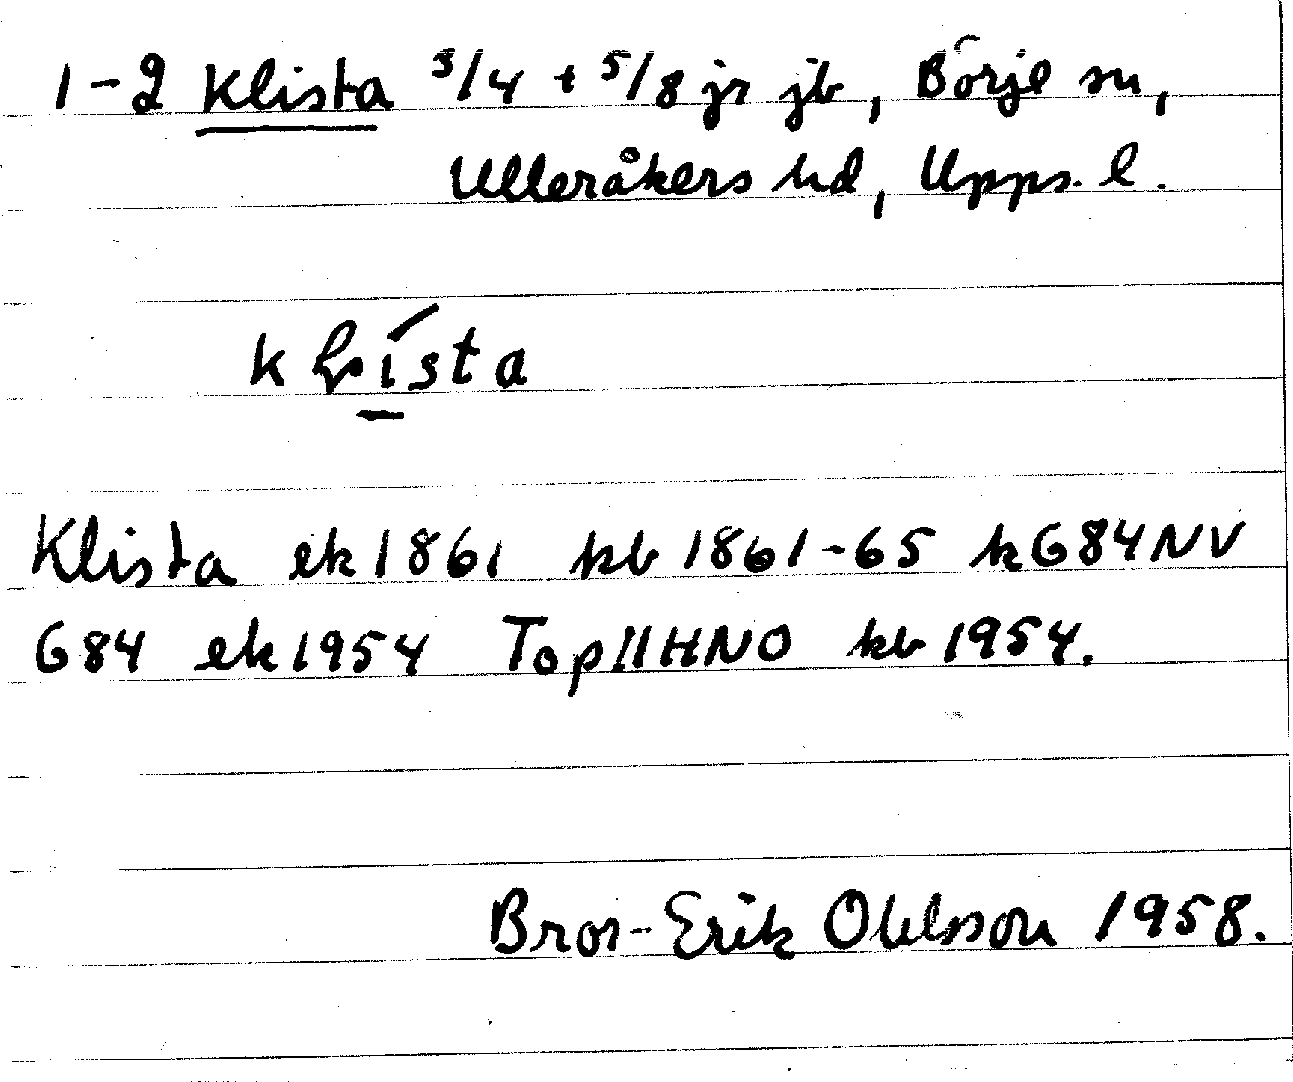 1-2 Klista 3/4 + 5/8 jr jb, Börje sn,
Ulleråkers hd, Upps. l.
Klista ek 1861 kb 1861-65 k G84NV
G84 ek 1954 Top11HNO kb 1954.
Bror-Erik Ohlsson 1958.